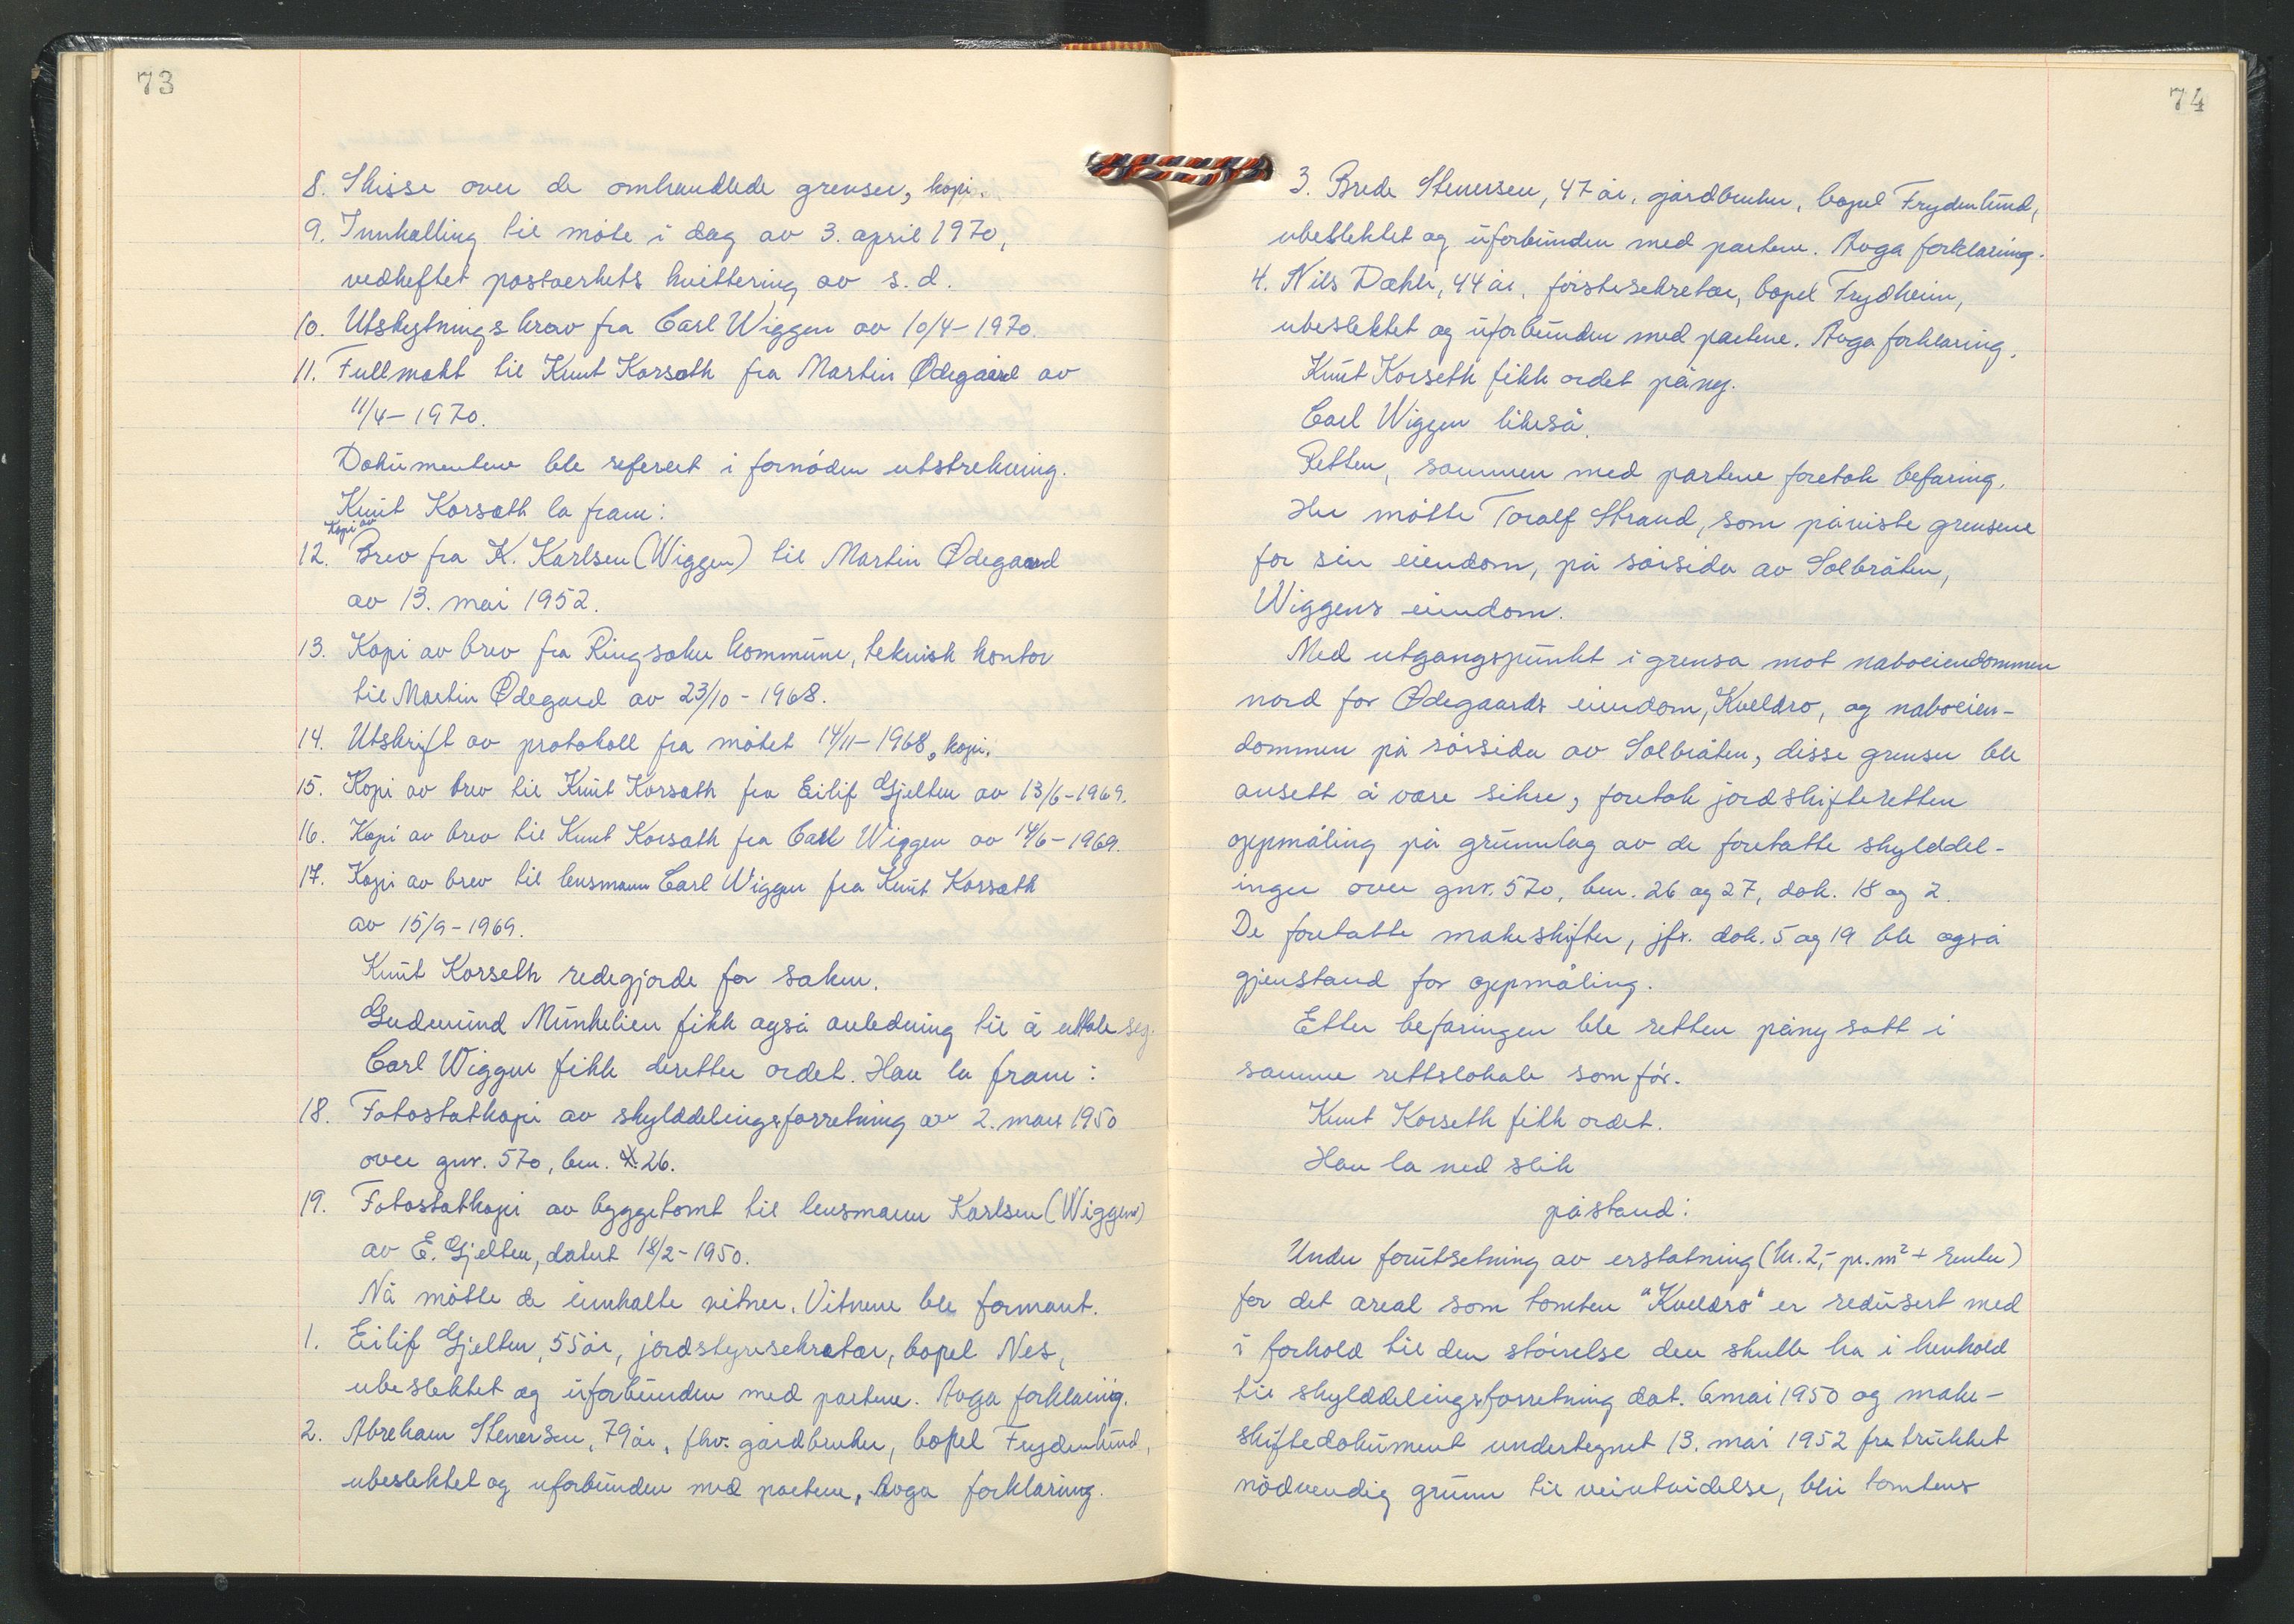 73
8. Skisse over de omhandlede grenser, kopi.
9. Innkalling til møte i dag av 3. april 1970,
vedheftet postverkets kvittering av s.d.
10. Utskytningskrav fra Carl Wiggen av 10/4-1970.
11. Fullmakt til Knut Korsæth fra Martin Ødegaard av
11/4-1970.
Dokumentene ble referert i fornøden utstrekning.
Knut Korsæth la fram:
Kopi av
12. Brev fra K. Karlsen (Wiggen) til Martin Ødegaard
av 13. mai 1952.
13. Kopi av brev fra Ringsaker kommune, teknisk kontor
til Martin Ødegard av 23/10-1968.
14. Utskrift av protokoll fra møtet 14/11-1968, kopi.
15. Kopi av brev til Knut Korsæth fra Eilif Gjelten av 13/6-1969.
16. Kopi av brev til Knut Korsæth fra Carl Wiggen av 14/6-1969.
17. Kopi av brev til lensmann Carl Wiggen fra Knut Korsæth
av 15/9-1969.
Knut Korseth redegjorde for saken.
Gudmund Munkelien fikk også anledning til å uttale seg.
Carl Wiggen fikk deretter ordet. Han la fram:
18. Fotostatkopi av skylddelingsforretning av 2. mars 1950
over gnr. 570, bnr. 26.
19. Fotostatkopi av byggetomt til lensmann Karlsen (Wiggen)
av E. Gjelten, datert 18/2-1950.
Nå møtte de innkalte vitner. Vitnene ble formant.
1. Eilif Gjelten, 55 år, jordstyresekretær, bopel Nes,
ubeslektet og uforbunden med partene. Avga forklaring.
2. Abraham Stenersen, 79 år, fhv. gårdbruker, bopel Frydenlund,
ubeslektet og uforbunden med partene, Avga forklaring.
74
3. Brede Stenersen, 47 år, gårdbruker, bopel Frydenlund,
ubeslektet og uforbunden med partene. Avga forklaring.
4. Nils Dæhli, 44 år, førstesekretær, bopel Frydheim,
ubeslektet og uforbunden med partene. Avga forklaring.
Knut Korseth fikk ordet påny.
Carl Wiggen likeså.
Retten, sammen med partene foretok befaring.
Her møtte Toralf Strand, som påviste grensene
for sin eiendom, på sørsida av Solbråten,
Wiggens eiendom.
Med utgangspunkt i grensa mot naboeiendommen
nord for Ødegaards eiendom, Kveldro, og naboeien-
dommen på sørsida av Solbråten, disse grenser ble
ansett å være sikre, foretok jordskifteretten
oppmåling på grunnlag av de foretatte skylddel-
inger over gnr. 570, bnr. 26 og 27, dok. 18 og 2.
De foretatte makeskifter, jfr. dok. 5 og 19 ble også
gjenstand for oppmåling.
Etter befaringen ble retten påny satt i
samme rettslokale som før.
Knut Korseth fikk ordet.
Han la ned slik
påstand:
Under forutsetning av erstatning (kr. 2,- pr. m² + renter)
for det areal som tomten "Kveldro" er redusert med
i forhold til den størrelse den skulle ha i henhold
til skylddelingsforretning dat. 6 mai 1950 og make-
skiftedokument undertegnet 13. mai 1952 fratrukket
nødvendig grunn til veiutvidelse, blir tomtens